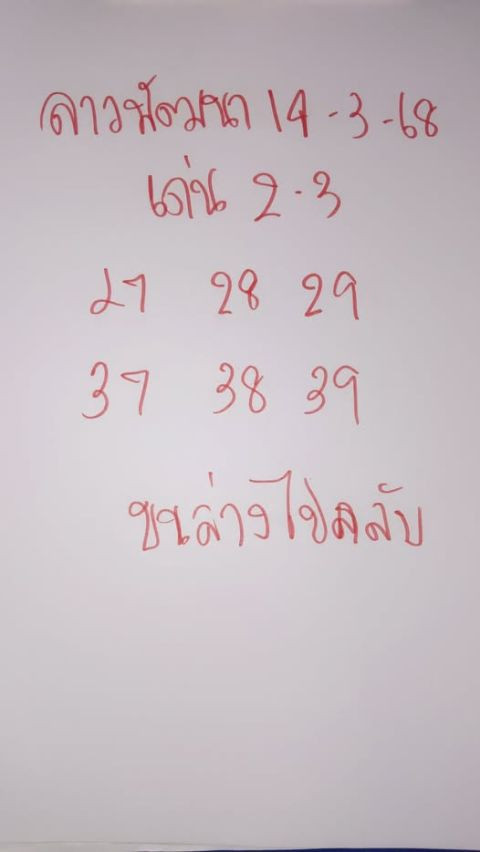 ลาวพัฒนา 14-3-68
เด่น 2-3
27 28 29
37 38 39
บนล่างไปกลับ